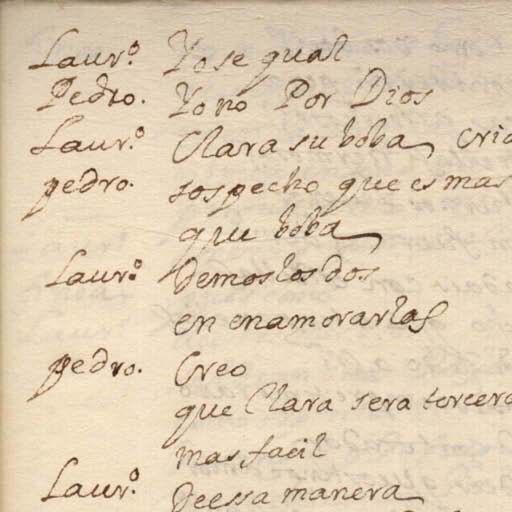 Laur.º Yo se qual
Pedro. Yo no Por Dios
Laur.º Clara su boba cria
pedro. sospecho que es mas
que boba
Laur.º Demos los dos
en enamorarlas
pedro. Creo
que Clara sera tercera
mas facil
Laur.º De essa manera